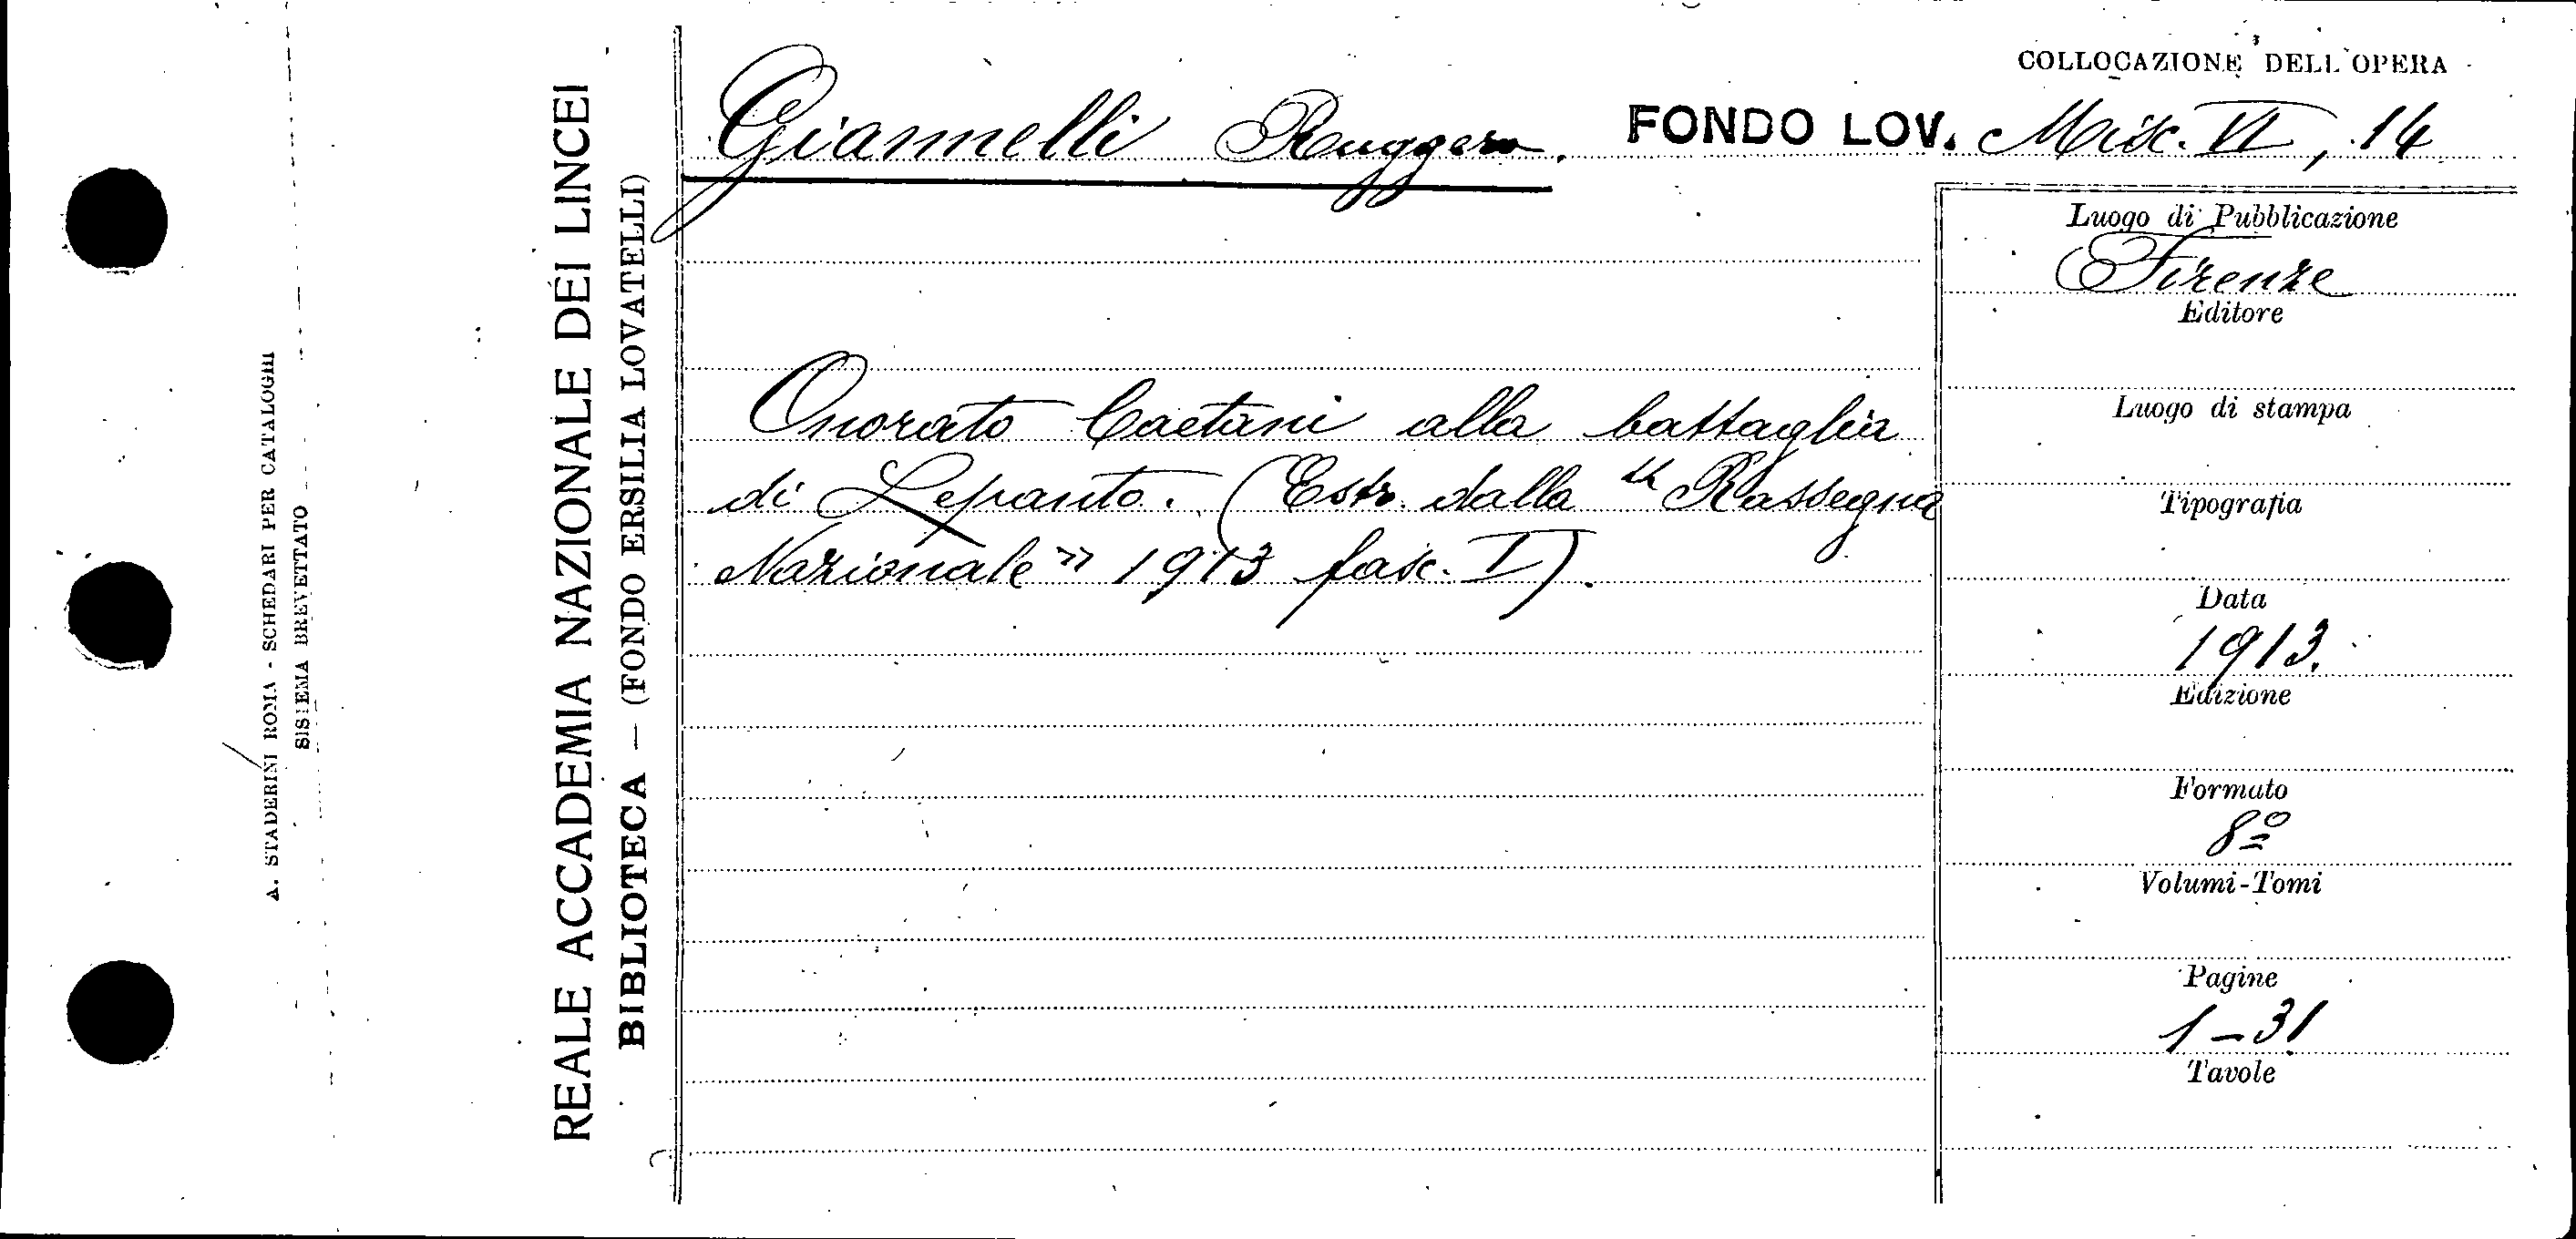 A. STADERINI ROMA - SCHEDARI PER CATALOGHI
SISTEMA BREVETTATO
REALE ACCADEMIA NAZIONALE DEI LINCEI
BIBLIOTECA — (FONDO ERSILIA LOVATELLI)
Giannelli Ruggero.
COLLOCAZIONE DELL'OPERA
FONDO LOV. Misc. VI, 14
Onorato Caetani alla battaglia
di Lepanto. (Estr. dalla "Rassegna
Nazionale" 1913 fasc. I).
Luogo di Pubblicazione
Firenze
Editore
Luogo di stampa
Tipografia
Data
1913.
Edizione
Formato
8º
Volumi-Tomi
Pagine
1-31
Tavole